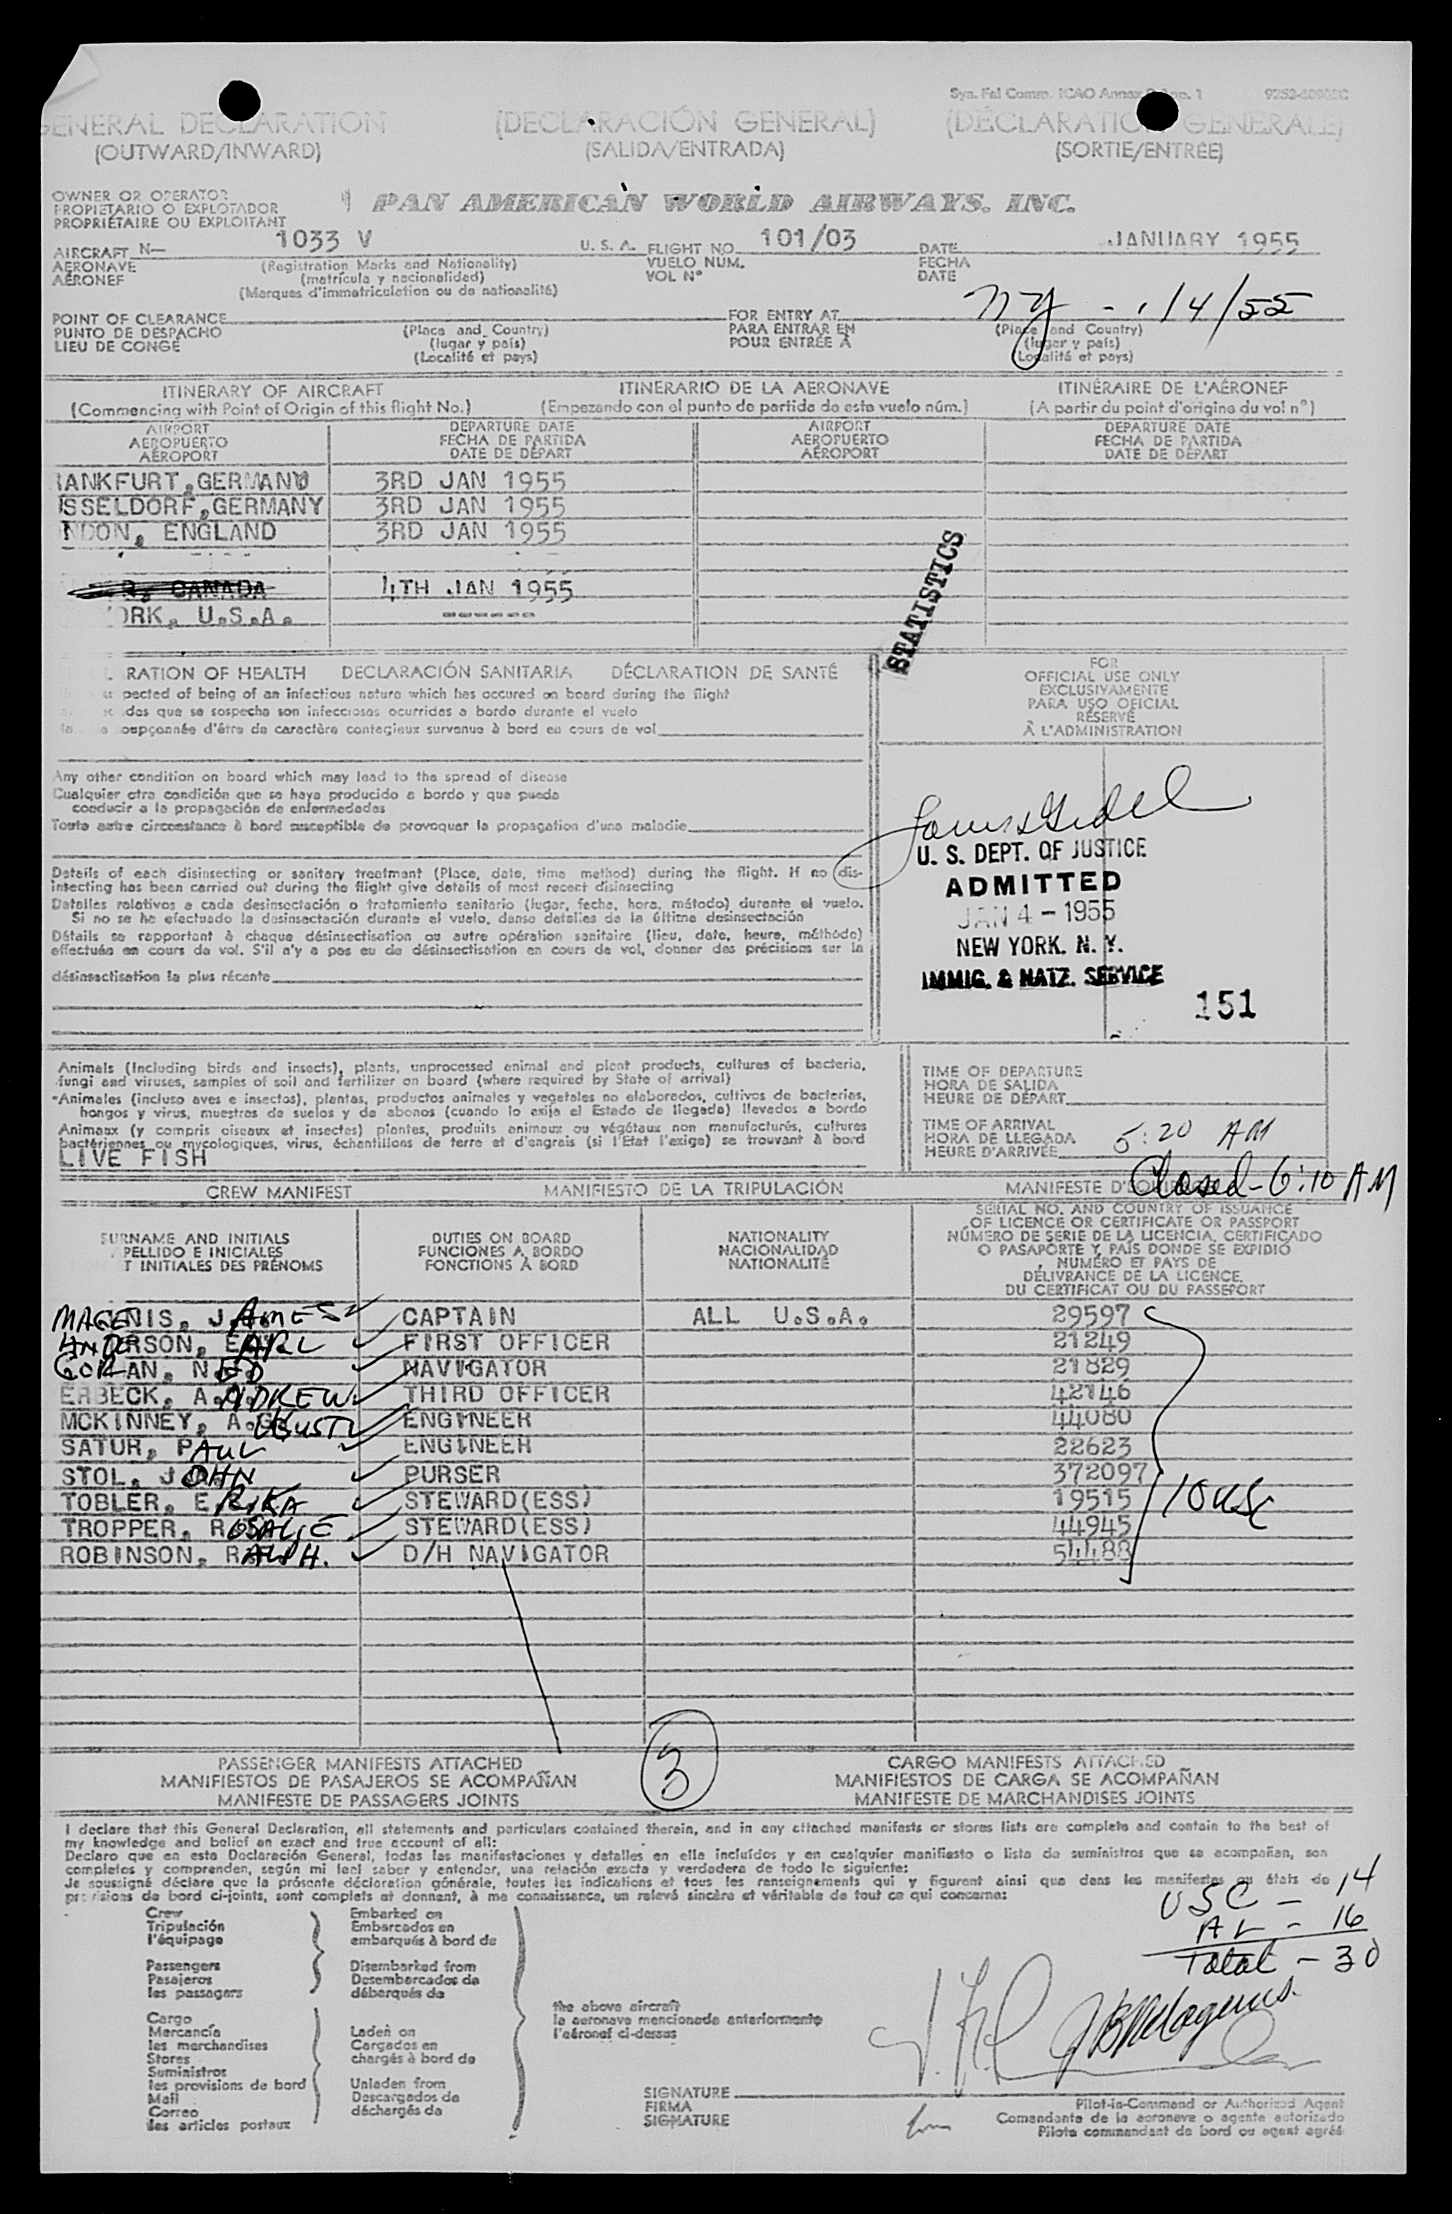 Sys. Fal Comm. ICAO Annex 1
GENERAL DECLARATION (DECLARACIÓN GENERAL) (DÉCLARATION GENERALE)
(OUTWARD/INWARD) (SALIDA/ENTRADA) (SORTIE/ENTRÉE)
OWNER OR OPERATOR
PROPIETARIO O EXPLOTADOR
PROPRIÉTAIRE OU EXPLOITANT
PAN AMERICAN WORLD AIRWAYS. INC.
AIRCRAFT N— 1033 V U. S. A. FLIGHT NO. 101/03 DATE JANUARY 1955
AERONAVE (Registration Marks and Nationality) VUELO NUM. FECHA
AÉRONEF (matrícula y nacionalidad) VOL Nº DATE
(Marques d'immatriculation ou de nationalité)
NY - 1/4/55
POINT OF CLEARANCE FOR ENTRY AT
PUNTO DE DESPACHO (Place and Country) PARA ENTRAR EN (Place and Country)
LIEU DE CONGÉ (lugar y país) POUR ENTRÉE A (lugar y país)
(Localité et pays) (Localité et pays)
ITINERARY OF AIRCRAFT ITINERARIO DE LA AERONAVE ITINÉRAIRE DE L'AÉRONEF
(Commencing with Point of Origin of this flight No.) (Empezando con el punto de partida de este vuelo núm.) (A partir du point d'origine du vol nº)
AIRPORT DEPARTURE DATE AIRPORT DEPARTURE DATE
AEROPUERTO FECHA DE PARTIDA AEROPUERTO FECHA DE PARTIDA
AÉROPORT DATE DE DÉPART AÉROPORT DATE DE DÉPART
ANKFURT, GERMANY 3RD JAN 1955
SSELDORF, GERMANY 3RD JAN 1955
NDON, ENGLAND 3RD JAN 1955
CANADA 4TH JAN 1955
ORK, U.S.A. ------
STATISTICS
RATION OF HEALTH DECLARACIÓN SANITARIA DÉCLARATION DE SANTÉ
pected of being of an infectious nature which has occured on board during the flight
des que se sospecha son infecciosas ocurridas a bordo durante el vuelo
oupçonnée d'être de caractère contagieux survenue à bord en cours de vol
FOR
OFFICIAL USE ONLY
EXCLUSIVAMENTE
PARA USO OFICIAL
RÉSERVÉ
À L'ADMINISTRATION
Any other condition on board which may lead to the spread of disease
Cualquier otra condición que se haya producido a bordo y que pueda
conducir a la propagación de enfermedades
Toute autre circonstance à bord susceptible de provoquer la propagation d'une maladie
Details of each disinsecting or sanitary treatment (Place, date, time method) during the flight. If no dis-
insecting has been carried out during the flight give details of most recent disinsecting
Detalles relativos a cada desinsectación o tratamiento sanitario (lugar, fecha, hora, método) durante el vuelo.
Si no se ha efectuado la desinsectación durante el vuelo, dense detalles de la última desinsectación
Détails se rapportant à chaque désinsectisation ou autre opération sanitaire (lieu, date, heure, méthode)
effectuée en cours de vol. S'il n'y a pas eu de désinsectisation en cours de vol, donner des précisions sur la
désinsectisation la plus récente
U. S. DEPT. OF JUSTICE
ADMITTED
JAN 4 - 1955
NEW YORK. N. Y.
IMMIG. & NATZ. SERVICE
151
Animals (Including birds and insects), plants, unprocessed animal and plant products, cultures of bacteria,
fungi and viruses, samples of soil and fertilizer on board (where required by State of arrival)
Animales (incluso aves e insectos), plantas, productos animales y vegetales no elaborados, cultivos de bacterias,
hongos y virus, muestras de suelos y de abonos (cuando lo exija el Estado de llegada) llevados a bordo
Animaux (y compris oiseaux et insectes) plantes, produits animaux ou végétaux non manufacturés, cultures
bactériennes ou mycologiques, virus, échantillons de terre et d'engrais (si l'Etat l'exige) se trouvant à bord
LIVE FISH
TIME OF DEPARTURE
HORA DE SALIDA
HEURE DE DÉPART
TIME OF ARRIVAL
HORA DE LLEGADA 5:20 AM
HEURE D'ARRIVÉE
Closed - 6:10 AM
CREW MANIFEST MANIFIESTO DE LA TRIPULACIÓN MANIFESTE D'ÉQUIPAGE
SURNAME AND INITIALS DUTIES ON BOARD NATIONALITY
PELLIDO E INICIALES FUNCIONES A BORDO NACIONALIDAD
T INITIALES DES PRÉNOMS FONCTIONS À BORD NATIONALITÉ
SERIAL NO. AND COUNTRY OF ISSUANCE
OF LICENCE OR CERTIFICATE OR PASSPORT
NÚMERO DE SERIE DE LA LICENCIA, CERTIFICADO
O PASAPORTE Y PAÍS DONDE SE EXPIDIÓ
NUMÉRO ET PAYS DE
DÉLIVRANCE DE LA LICENCE,
DU CERTIFICAT OU DU PASSEPORT
MAGENIS, JAMES CAPTAIN ALL U.S.A. 29597
ANDERSON, EARL FIRST OFFICER 21249
GORAN, NED NAVIGATOR 21829
ERBECK, A. ANDREW THIRD OFFICER 42146
MCKINNEY, A. ENGINEER 44080
SATUR, PAUL ENGINEER 22623
STOL, JOHN PURSER 372097
TOBLER, ERIKA STEWARD(ESS) 19515 10 USC
TROPPER, ROSALIE STEWARD(ESS) 44945
ROBINSON, RALPH. D/H NAVIGATOR 54488
3
PASSENGER MANIFESTS ATTACHED CARGO MANIFESTS ATTACHED
MANIFIESTOS DE PASAJEROS SE ACOMPAÑAN MANIFIESTOS DE CARGA SE ACOMPAÑAN
MANIFESTE DE PASSAGERS JOINTS MANIFESTE DE MARCHANDISES JOINTS
I declare that this General Declaration, all statements and particulars contained therein, and in any attached manifests or stores lists are complete and contain to the best of
my knowledge and belief an exact and true account of all:
Declaro que en esta Declaración General, todas las manifestaciones y detalles en ella incluídos y en cualquier manifiesto o lista de suministros que se acompañan, son
completos y comprenden, según mi leal saber y entender, una relación exacta y verdadera de todo lo siguiente:
Je soussigné déclare que la présente déclaration générale, toutes les indications et tous les renseignements qui y figurent ainsi que dans les manifestes ou états de
provisions de bord ci-joints, sont complets et donnent, à ma connaissance, un relevé sincère et véritable de tout ce qui concerne:
USC - 14
AL - 16
Total - 30
Crew Embarked on
Tripulación Embarcados en
l'équipage embarqués à bord de
Passengers Disembarked from
Pasajeros Desembarcados de
les passagers débarqués de
the above aircraft
la aeronave mencionada anteriormente
l'aéronef ci-dessus
Cargo
Mercancía Laden on
les marchandises Cargados en
Stores chargés à bord de
Suministros
les provisions de bord Unladen from
Mail Descargados de
Correo déchargés de
les articles postaux
JB Magenis.
SIGNATURE
FIRMA
SIGNATURE
Pilot-in-Command or Authorized Agent
Comandante de la aeronave o agente autorizado
Pilote commandant de bord ou agent agréé